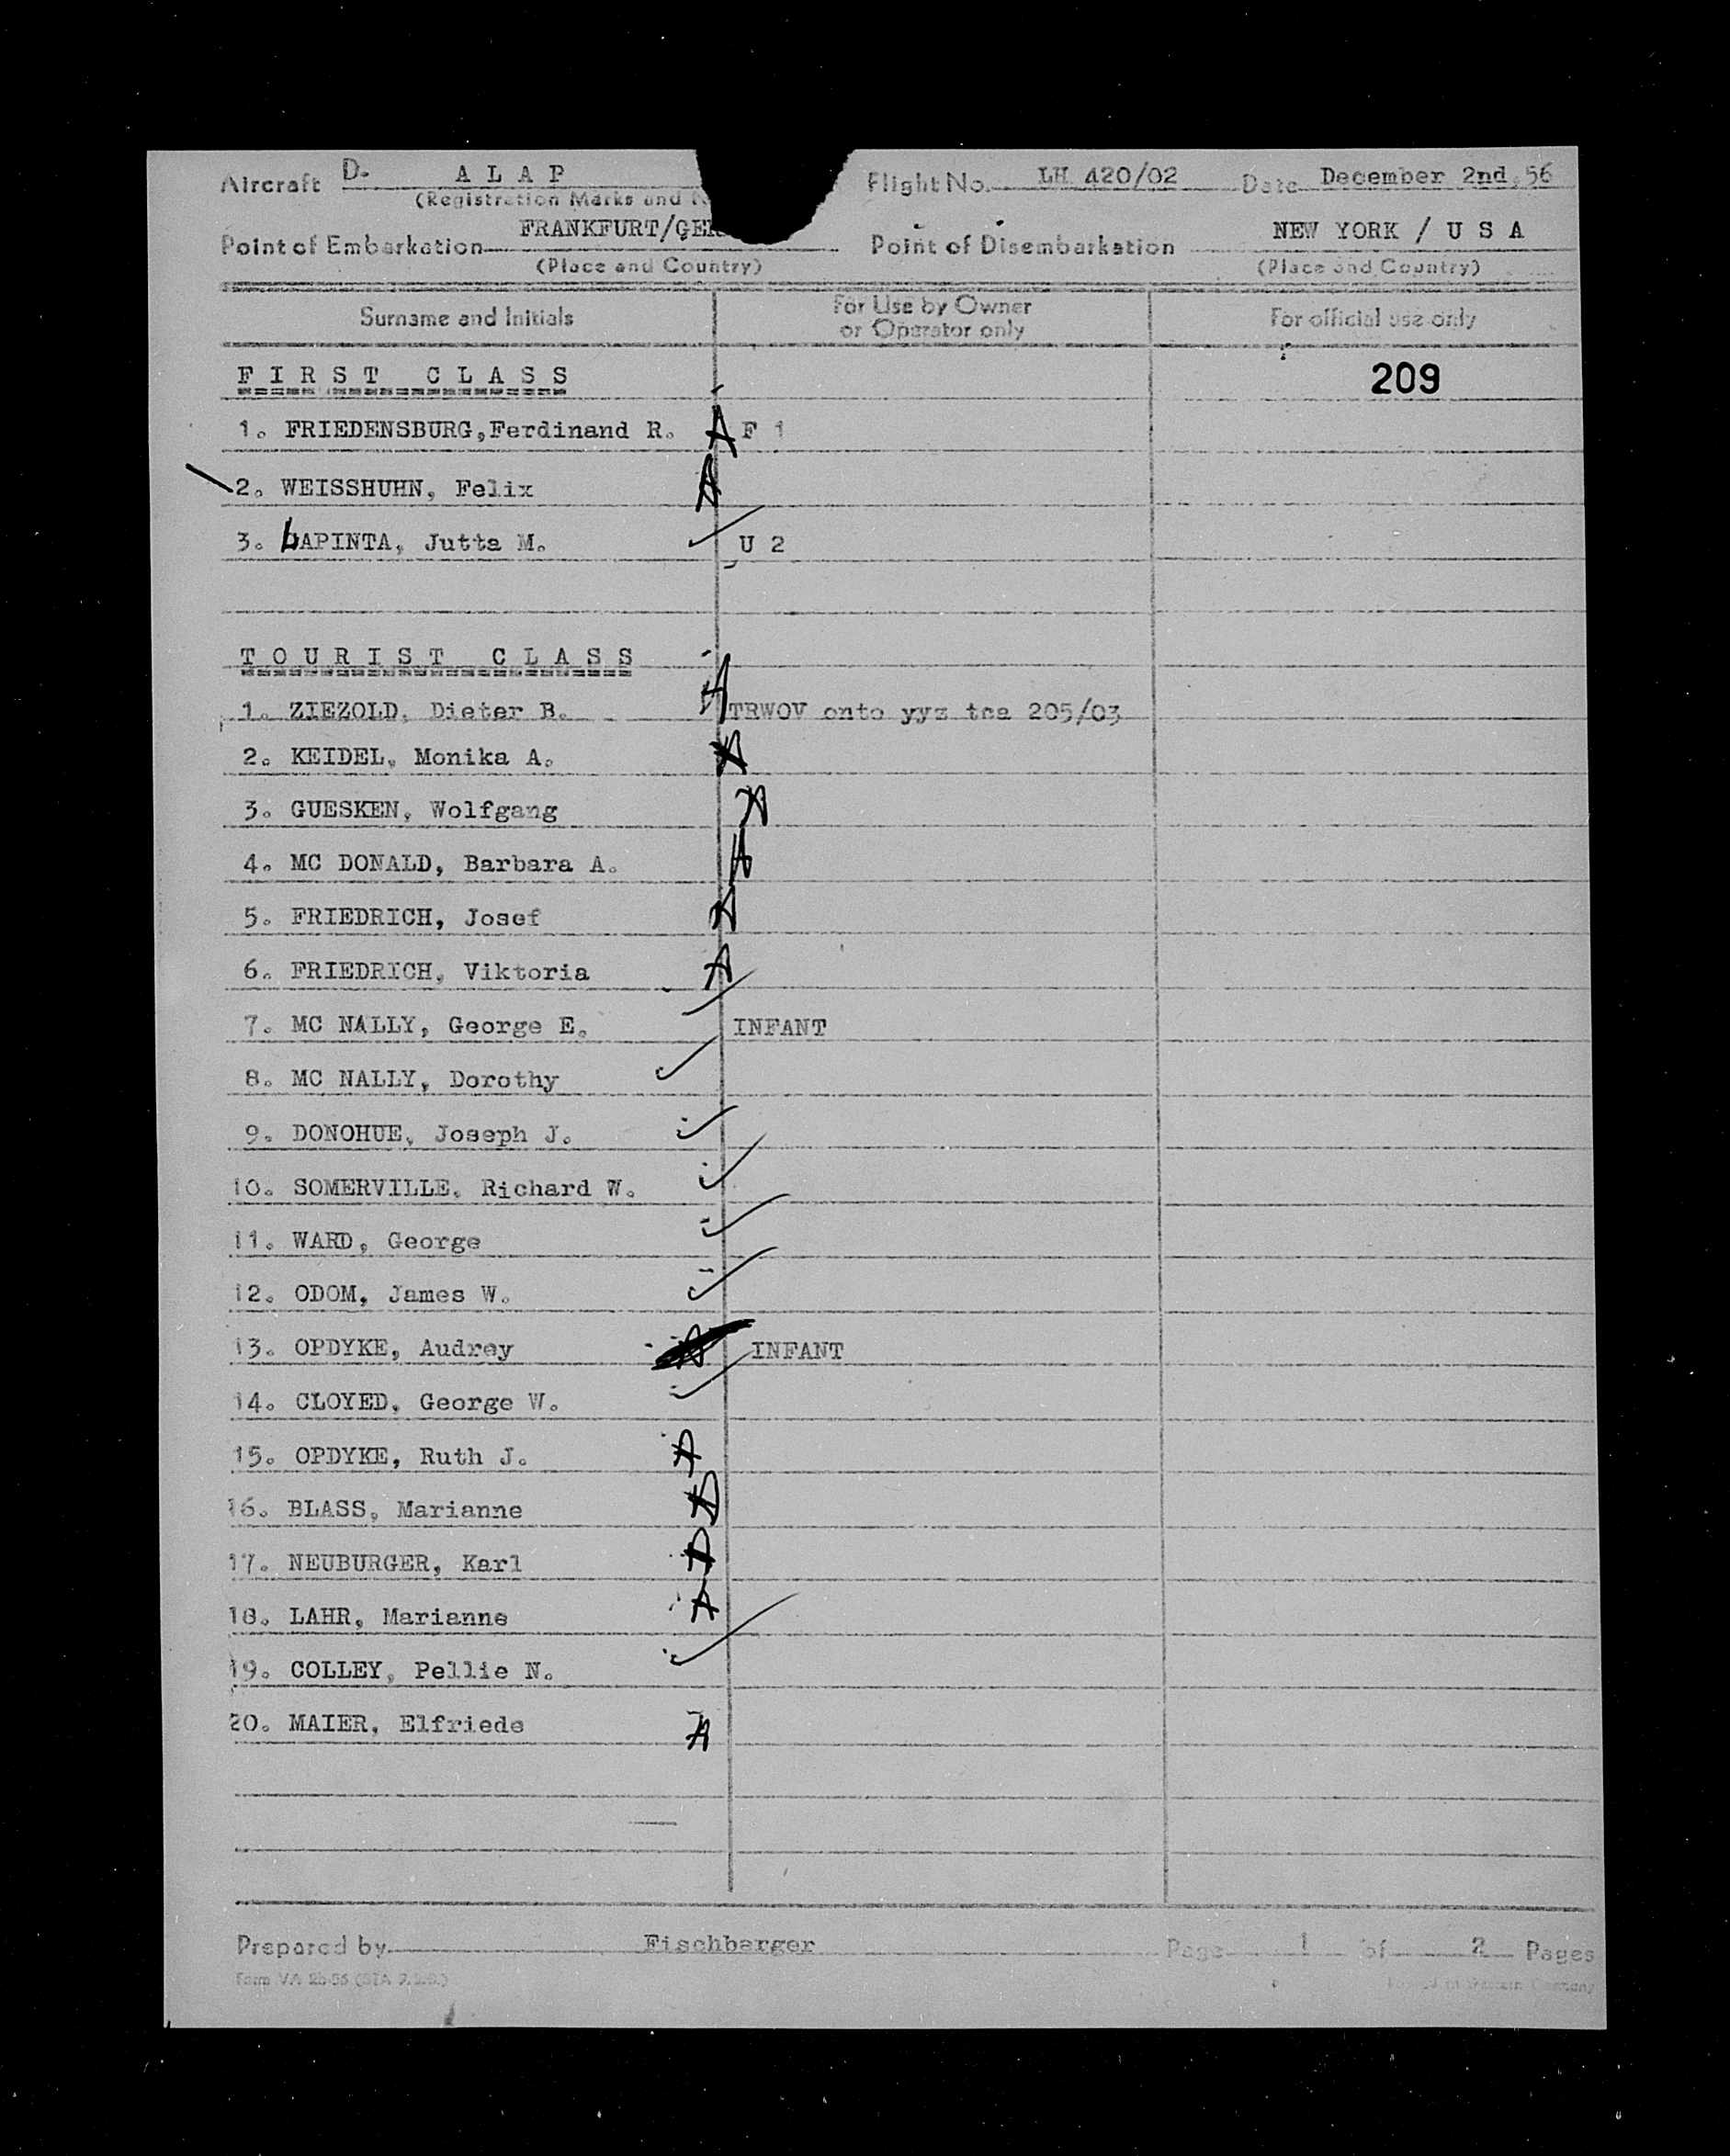 Aircraft D- ALAP Flight No. LH 420/02 Date December 2nd, 56
(Registration Marks and
FRANKFURT/GER NEW YORK / U S A
Point of Embarkation Point of Disembarkation
(Place and Country) (Place and Country)
Surname and Initials For Use by Owner or Operator only For official use only
FIRST CLASS 209
1. FRIEDENSBURG, Ferdinand R. A F 1
2. WEISSHUHN, Felix A
3. LAPINTA, Jutta M. U 2
TOURIST CLASS
1. ZIEZOLD, Dieter B. A TRWOV onto yyz tca 205/03
2. KEIDEL, Monika A. A
3. GUESKEN, Wolfgang A
4. MC DONALD, Barbara A. A
5. FRIEDRICH, Josef A
6. FRIEDRICH, Viktoria A
7. MC NALLY, George E. INFANT
8. MC NALLY, Dorothy
9. DONOHUE, Joseph J.
10. SOMERVILLE, Richard W.
11. WARD, George
12. ODOM, James W.
13. OPDYKE, Audrey INFANT
14. CLOYED, George W.
15. OPDYKE, Ruth J. A
16. BLASS, Marianne A
17. NEUBURGER, Karl
18. LAHR, Marianne A
19. COLLEY, Pellie N.
20. MAIER, Elfriede A
Prepared by Fischbarger Page 1 of 2 Pages
Form VA 2b-55